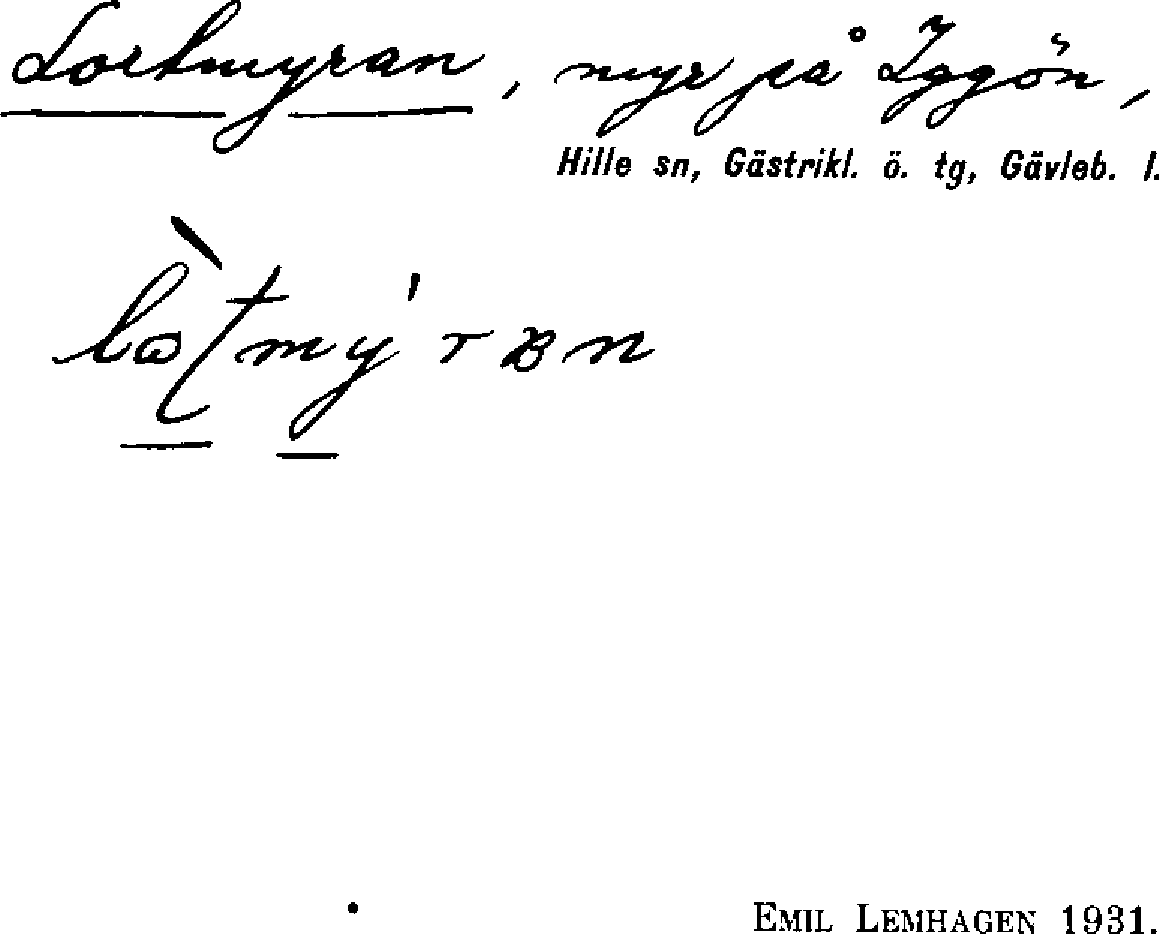 Lortmyran, myr på Iggön,
Hille sn, Gästrikl. ö. tg, Gävleb. l.
EMIL LEMHAGEN 1931.